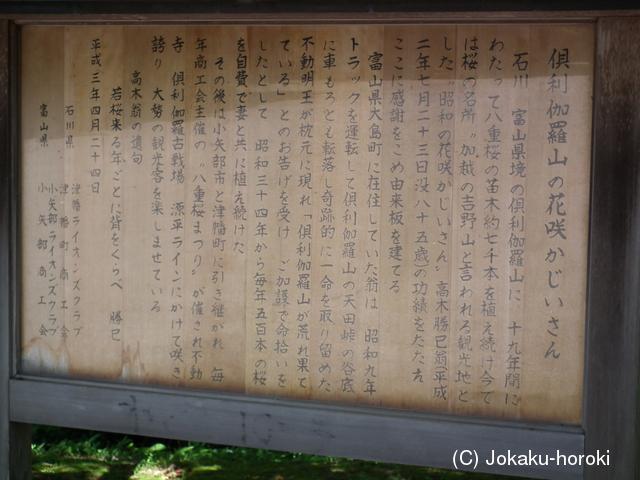 倶利伽羅山の花咲かじいさん
石川 富山県境の倶利伽羅山に 十九年間に
わたって八重桜の苗木約七千本を植え続け今で
は桜の名所〝加越の吉野山〟と言われる観光地と
した〝昭和の花咲かじいさん〟高木勝己翁(平成
二年七月二十三日没八十五歳)の功績をたたえ
ここに感謝をこめ由来板を建てる
富山県大島町に在住していた翁は 昭和九年
トラックを運転して倶利伽羅山の天田峠の谷底
に車もろとも転落し奇跡的に一命を取り留めた
不動明王が枕元に現れ「倶利伽羅山が荒れ果て
ている」とのお告げを受け ご加護で命拾いを
したとして 昭和三十四年から毎年五百本の桜
を自費で妻と共に植え続けた
その後は小矢部市と津幡町に引き継がれ 毎
年商工会主催の〝八重桜まつり〟が催され不動
寺 倶利伽羅古戦場 源平ラインにかけて咲き
誇り 大勢の観光客を楽しませている
高木翁の遺句
若桜来る年ごとに背をくらべ 勝己
平成三年四月二十四日
石川県 津幡ライオンズクラブ
津幡町商工会
富山県 小矢部ライオンズクラブ
小矢部商工会
(C) Jokaku-horoki